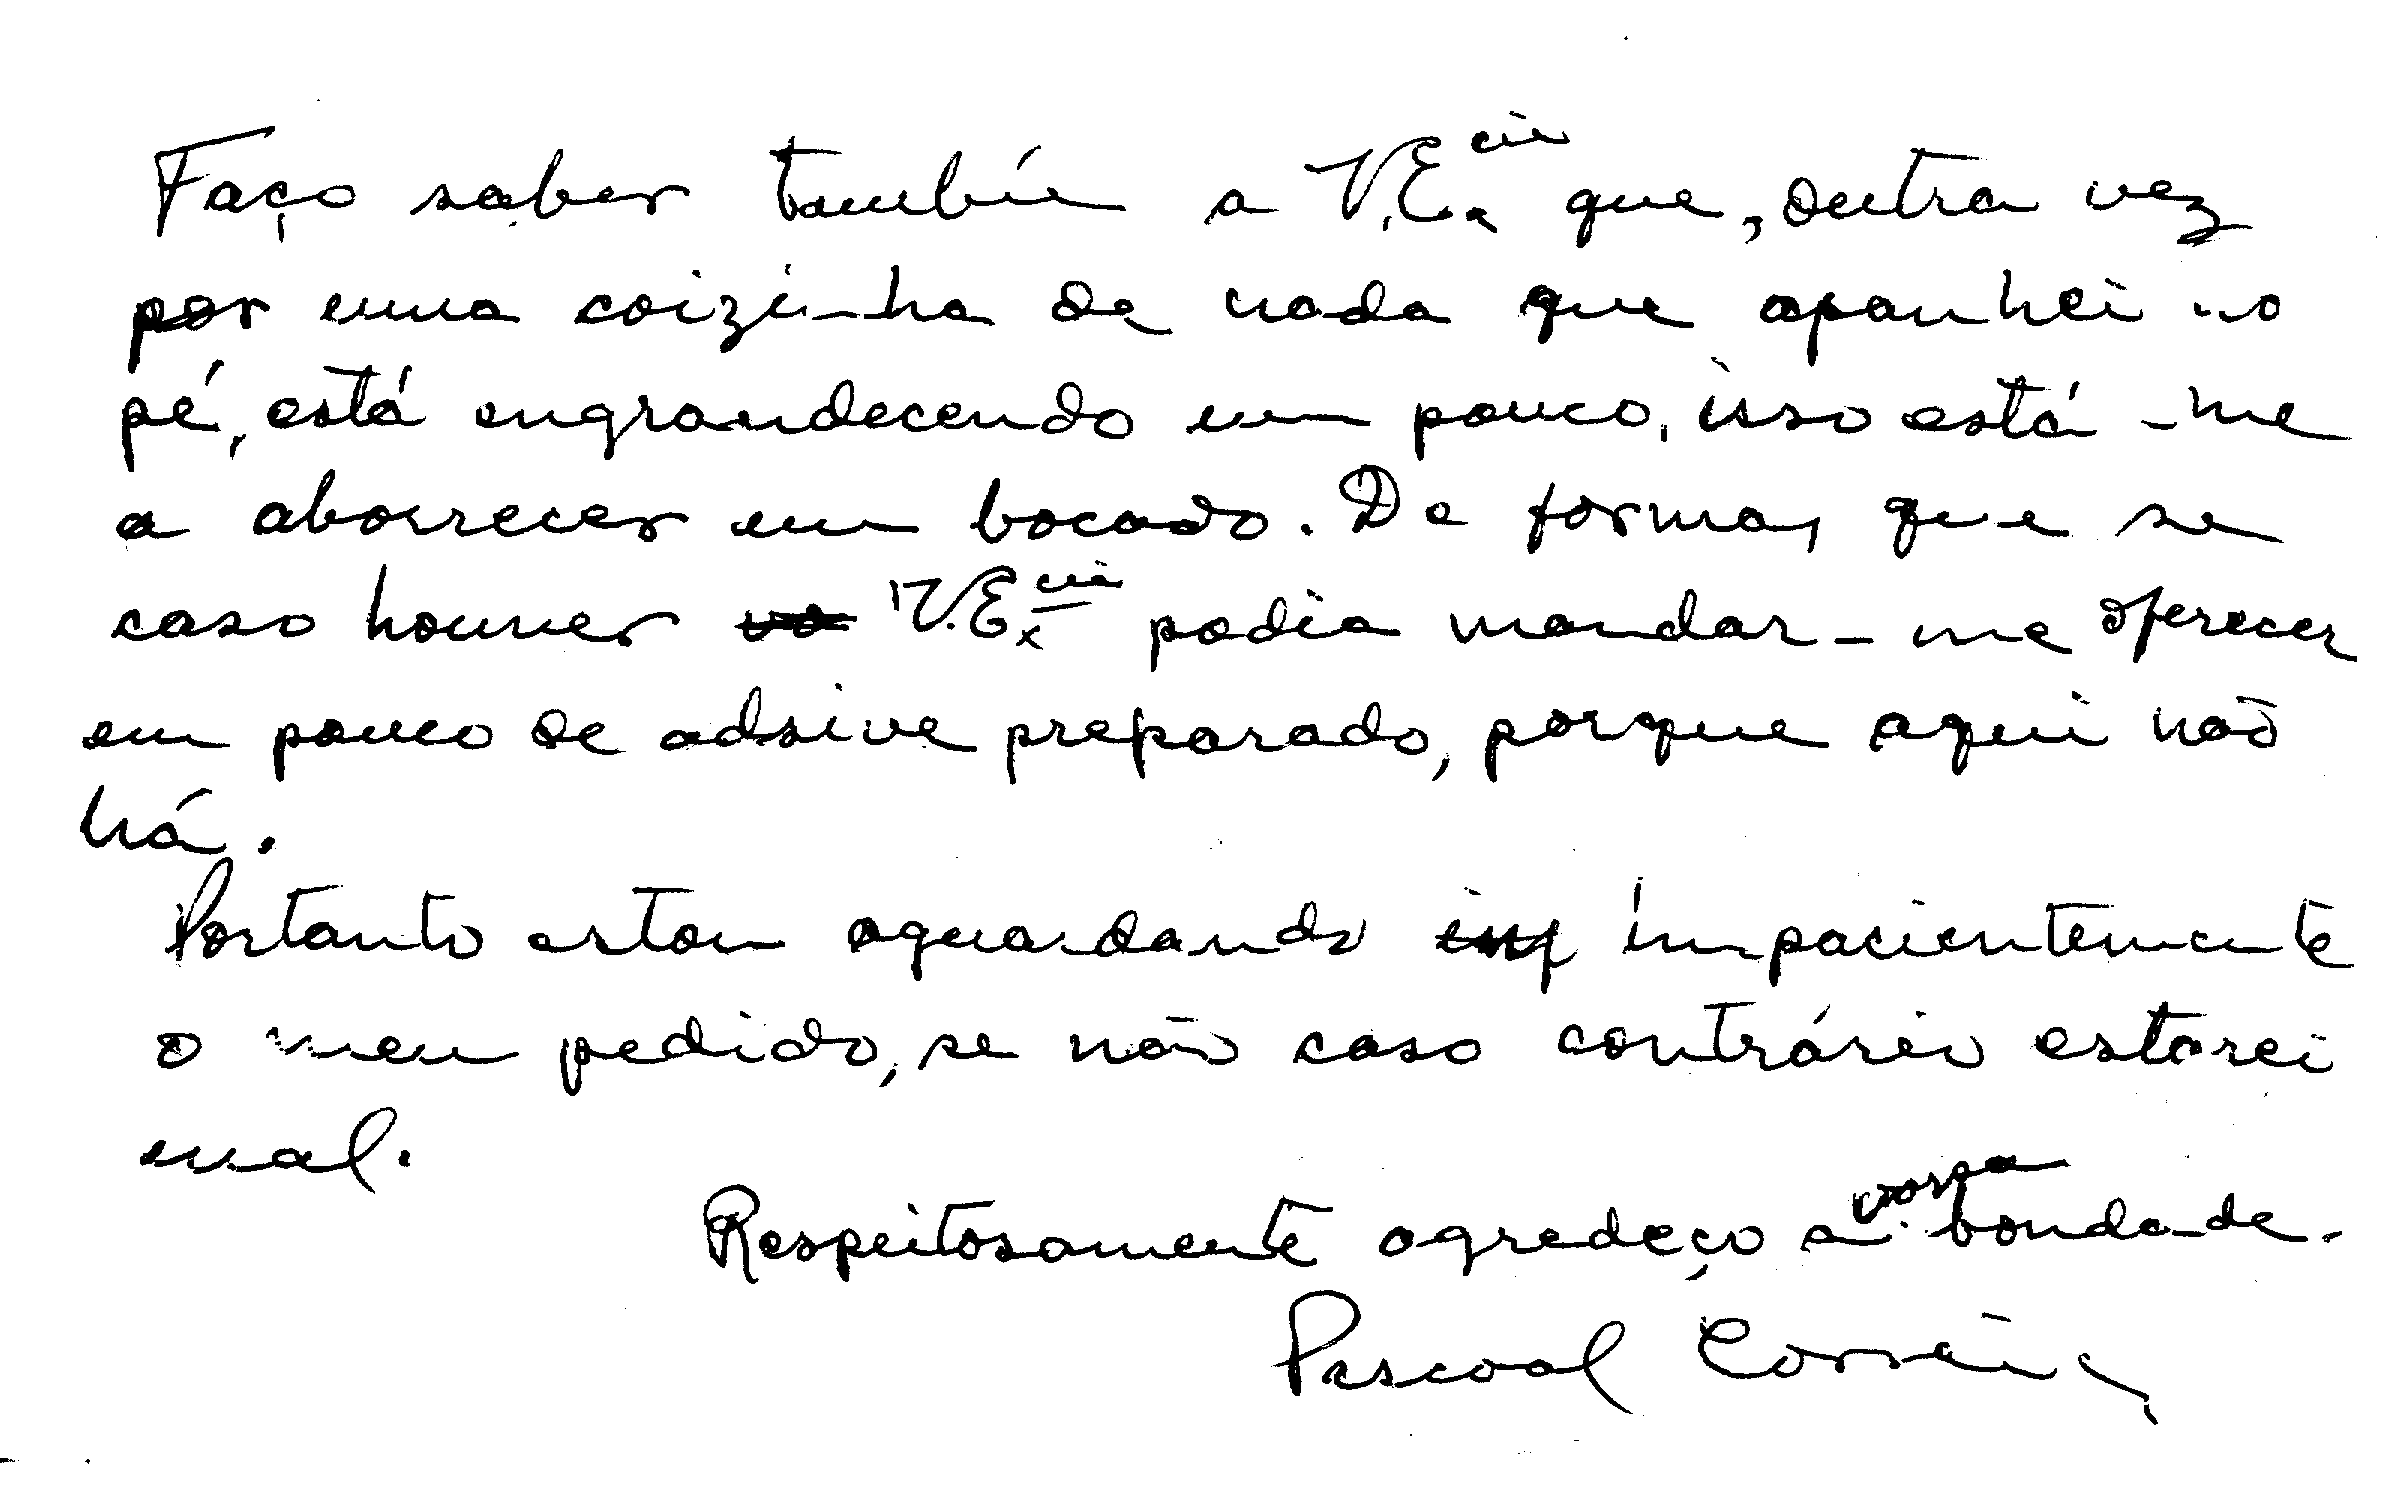 Faço saber também a V. Exᶜⁱᵃ que, outra vez
por uma coizinha de nada que apanhei no
pé, está engrandecendo um pouco, isso está-me
a aborrecer um bocado. De forma, que se
caso houver V. Exᶜⁱᵃ podia mandar-me oferecer
um pouco de adsive preparado, porque aqui não
há.
Portanto estou aguardando impacientemente
o meu pedido, se não caso contrário estarei
mal.
Respeitosamente agredeço a vossa bondade.
Pascoal Correia